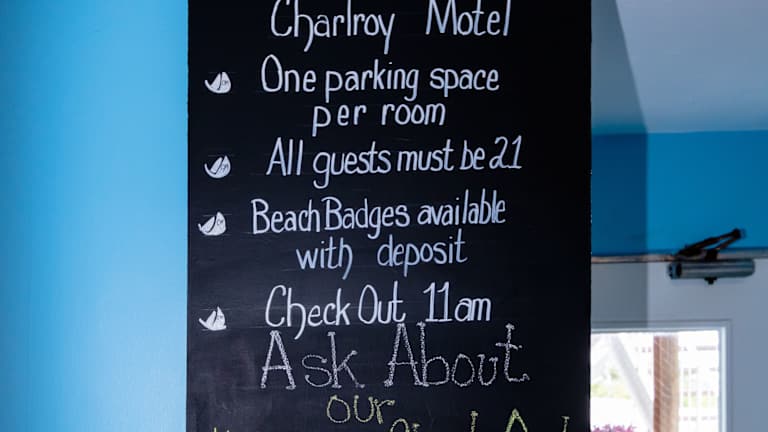 Charlroy Motel
One parking space
per room
All guests must be 21
Beach Badges available
with deposit
Check Out 11am
Ask About
our